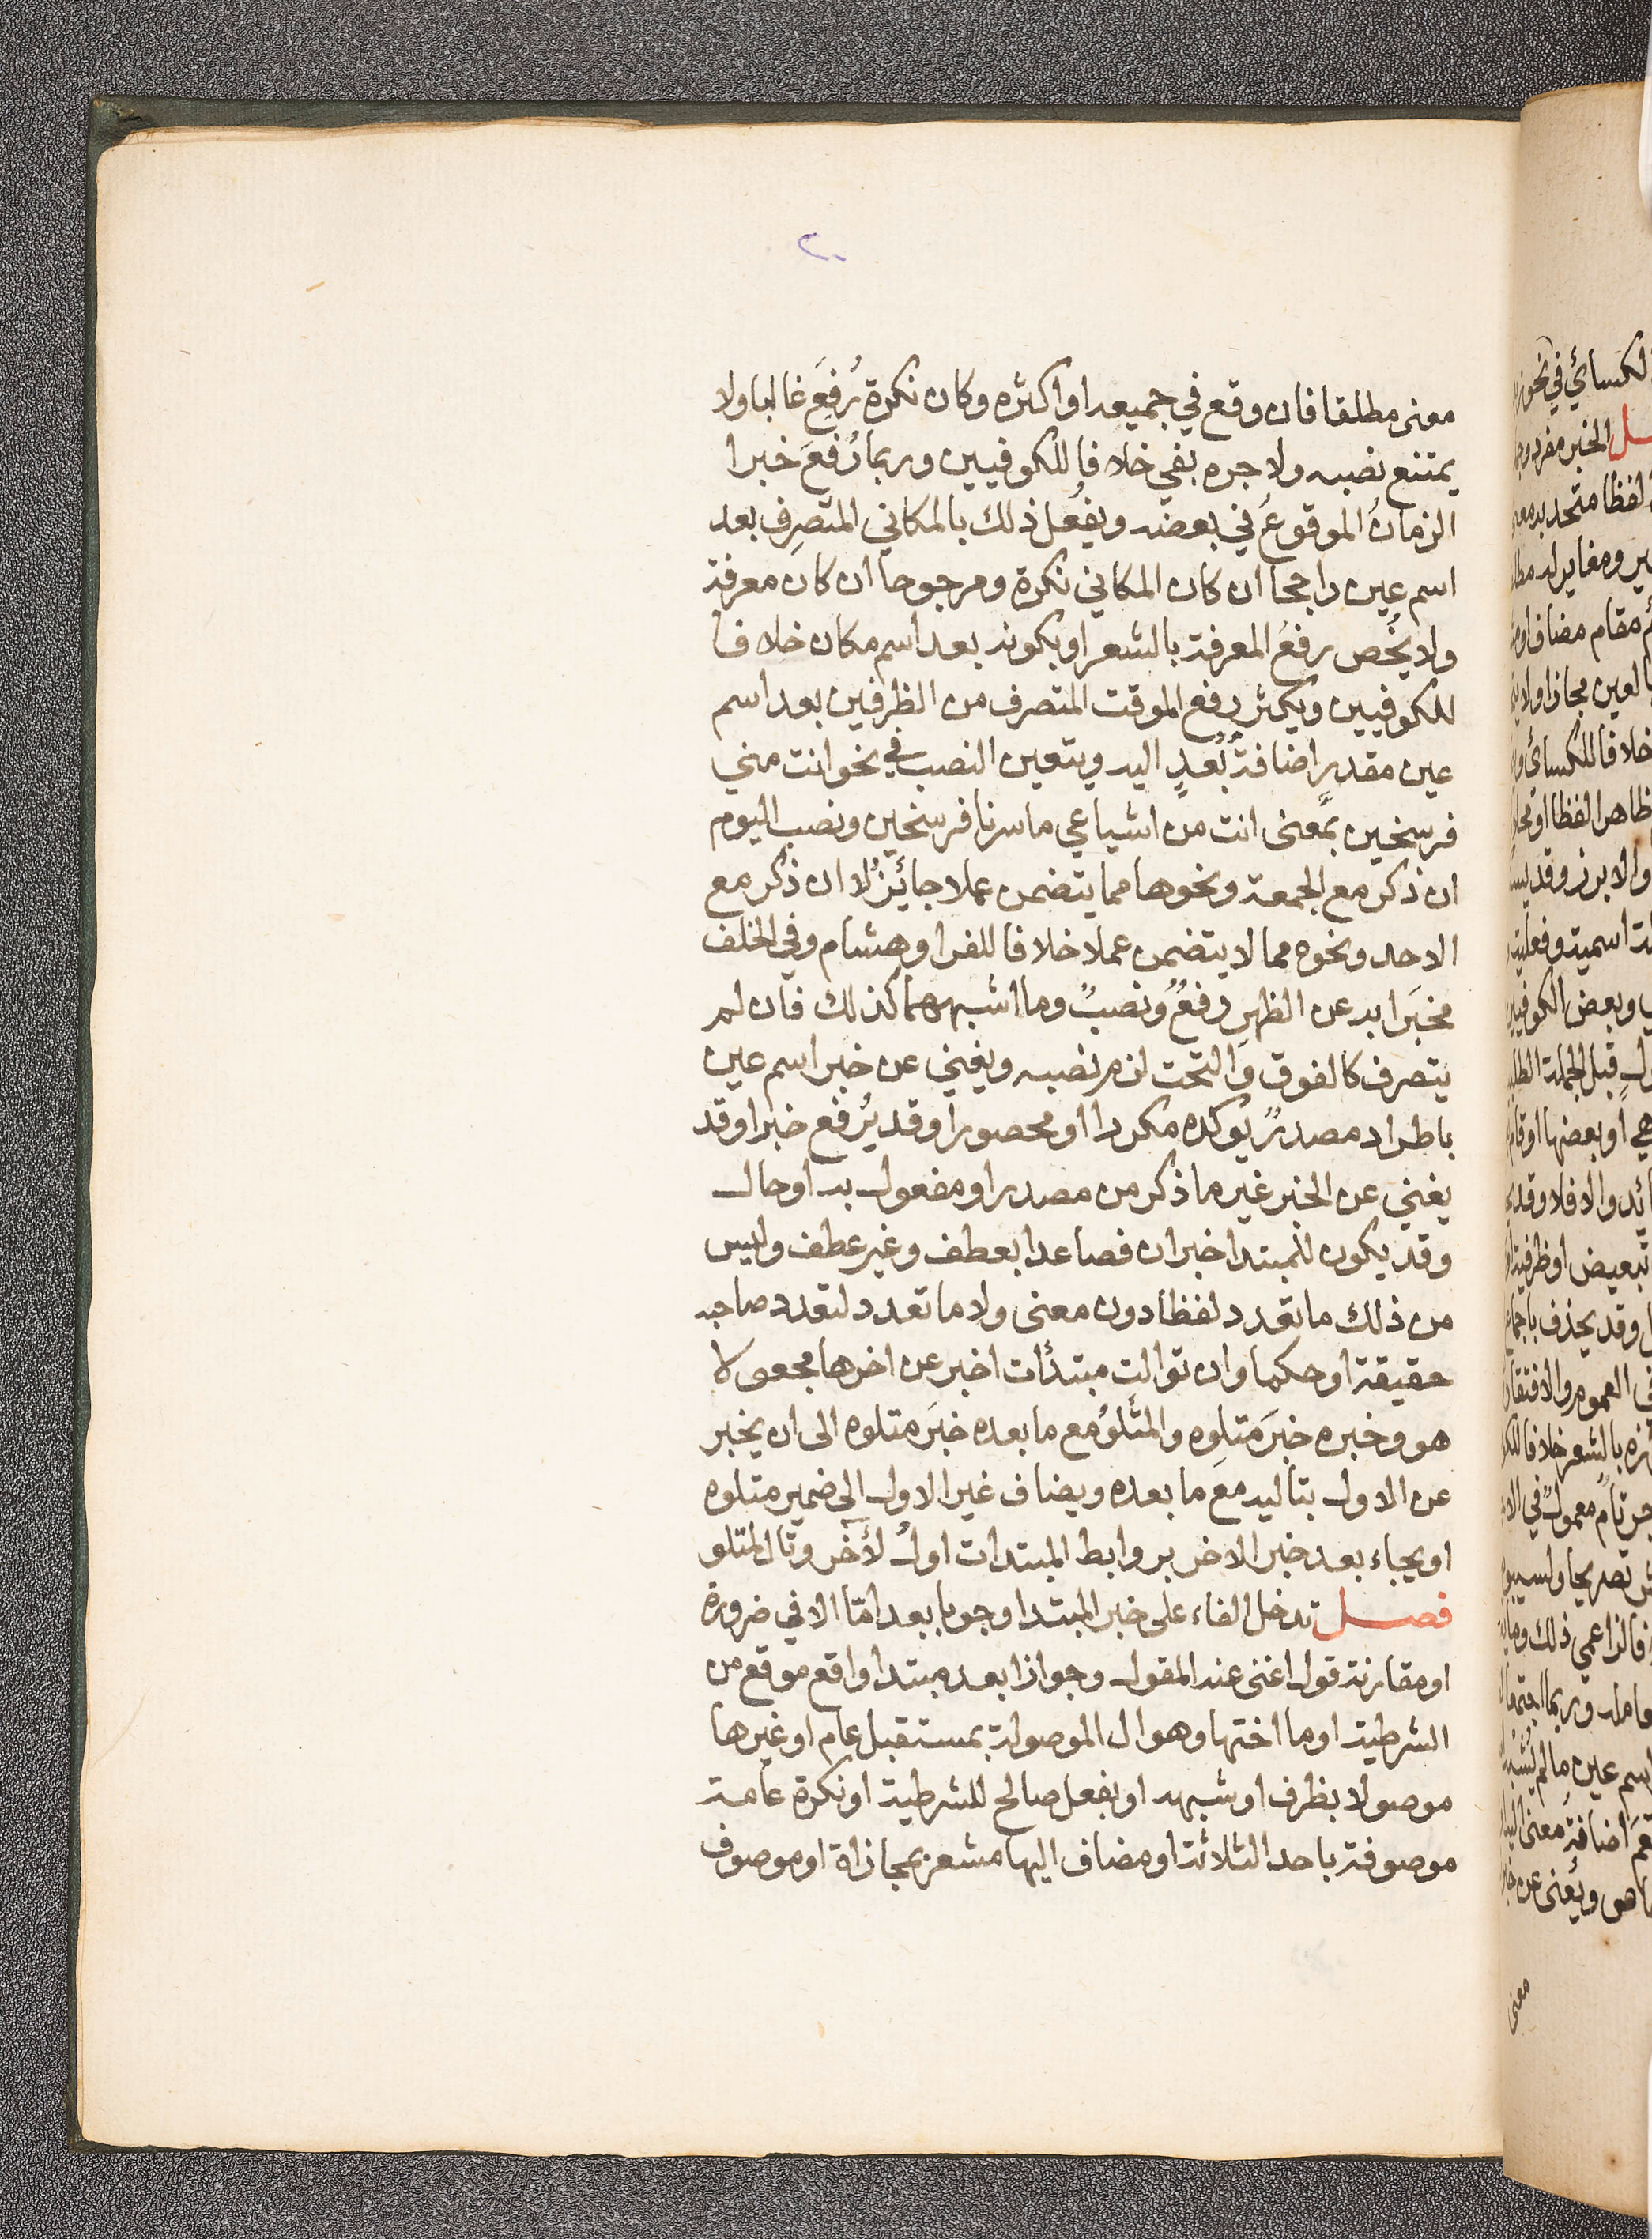 ٢٠
معنى مطلقا فان وقع في جميعه او اكثره وكان نكرة رُفِعَ غالبا ولا
يمتنع نصبه ولا جره بفي خلافا للكوفيين وربما رُفعَ خبرا
الزمانُ الموقوعُ في بعضه ويفعل ذلك بالمكاني المتصرِف بعد
اسم عين راجحا ان كان المكاني نكرة ومرجوحا ان كان معرفة
ولا يخُص رفعُ المعرفة بالشعر او بكونه بعد اسم مكان خلافا
للكوفيين ويكثر رفع الموقت المتصرف من الظرفين بعد اسم
عين مقدرٍ اضافةُ بُعدٍ اليه ويتعين النصب في نحو انت مني
فرسخين بمعنى انت من اشياعي ما سرنا فرسخين ونصب اليوم
ان ذكر مع الجمعة ونحوها مما يتضمن عملا جائزٌ لا ان ذُكر مع
الاحد ونحوه مما لا يتضمن عملا خلافا للفرا وهشام وفي الخلف
مخبَرا به عن الظهرِ رفعٌ ونصبٌ وما اشبههما كذلك فان لم
يتصرف كالفوق والتحت لزم نصبه ويغني عن خبر اسم عين
باطراد مصدرٌ يوكده مكررا او محصورا وقد يُرفع خبرا وقد
يغني عن الخبر غير ما ذكر من مصدر او مفعول به او حال
وقد يكون للمبتدا خبران فصاعدا بعطف وغير عطف وليس
من ذلك ما تعدد لفظا دون معنى ولا ما تعدد لتعدد صاحبه
حقيقة او حكما وان توالت مبتدأت اخبر عن اخرها مجعولا
هو وخبره خبرَ متلوِه والمتلوُ مع ما بعده خبرَ متلوه الى ان يخبر
عن الاول بتاليه مع ما بعده ويضاف غير الاول الى ضمير متلوه
او يجاء بعد خبر الاخر بروابط المبتدات اولُ لأخر وتال لمتلو
فصل تدخل الفاء على خبر المبتدا وجوبا بعد امّا الا في ضرورة
او مقارنة قول اغنى عنه المقول وجوازا بعد مبتدا واقع موقع من
الشرطية او ما اختها وهو ال الموصولة بمستقبل عام او غيرها
موصولا بظرف او شبهه او بفعل صالح للشرطية او نكرة عامة
موصوفة باحد الثلاثة او مضاف اليها مشعر بمجازاة او موصوف